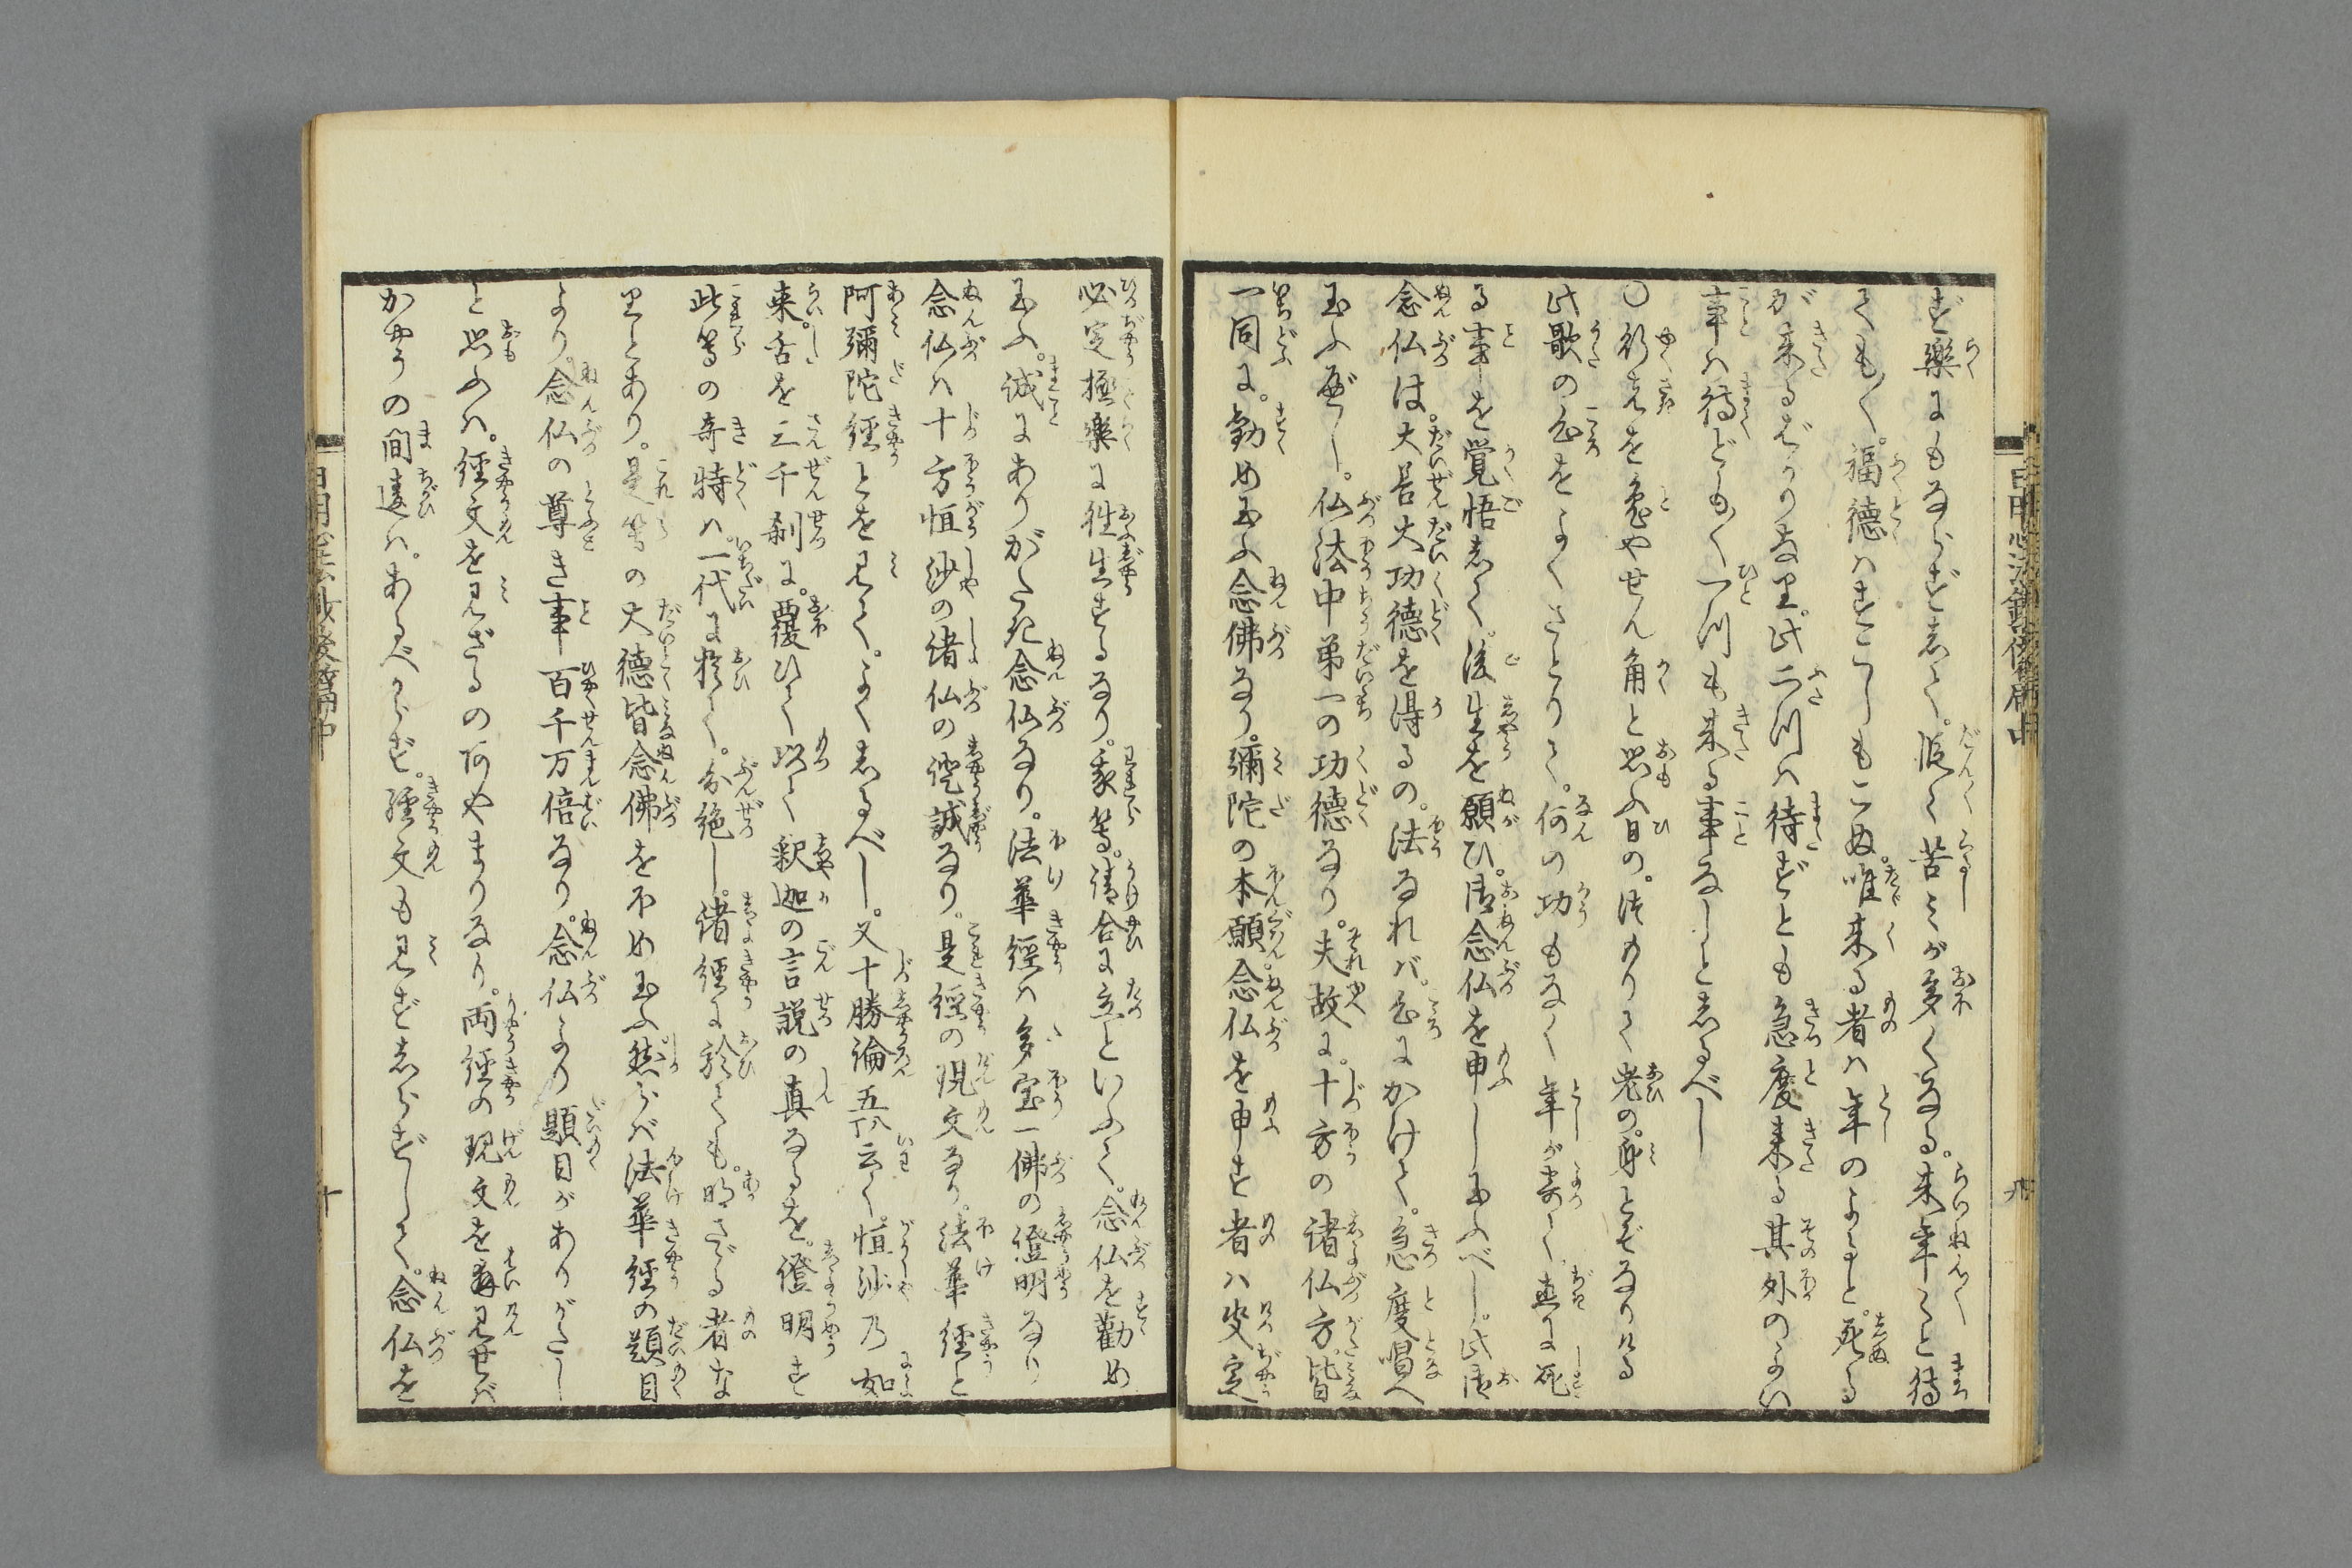 ず樂にもならずして。段〻苦ミが多くなる。来年〻と待
ても〳〵。福德ハすこしもこぬ。唯来る者ハ年のよると。死る
が来るばかりなり。此二ツハ待ずとも急度来る其外のよい
事ハ待ども〳〵一ツも来る事なしとしるべし
〇行さきを兔やせん角と思ふ日の。つもりて老の。身とぞなりける
此歌の心をよくさとりて。何の功もなく年が寄て。直に死
る事を覚悟して。後生を願ひ。御念仏を申し玉ふべし。此御
念仏は。大善大功德を得るの。法なれバ。心にかけて。急度唱へ
玉ふべし。仏法中第一の功德なり。夫故に。十方の諸仏方。皆
一同に。勧め玉ふ念佛なり。彌陀の本願。念仏を申す者ハ必定
必定極樂に徃生するなり。我等。請合に立といふて。念仏を勸め
玉ふ。誠にありがたき念仏なり。法華經ハ多宝一佛の證明なり
念仏ハ十方恒沙の諸仏の證誠なり。是經の現文なり。法華經と
阿彌陀經とを見て。よくしるべし。又十勝論五十八云く。恒沙乃如
来。舌を三千刹に。覆ひて以て釈迦の言説の真なるを。證明す
此等の奇特ハ。一代に於て。分絶し。諸經に於ても。明さゞる者な
りとあり。是等の大德皆念佛をほめ玉ふ然らバ法華經の題目
より。念仏の尊き事百千万倍なり。念仏よの題目がありがたし
と思ふハ。經文を見ざるのあやまりなり。両經の現文を拜見せバ
かやうの間違ハ。あるべからず。經文も見ずしらずして。念仏を
十